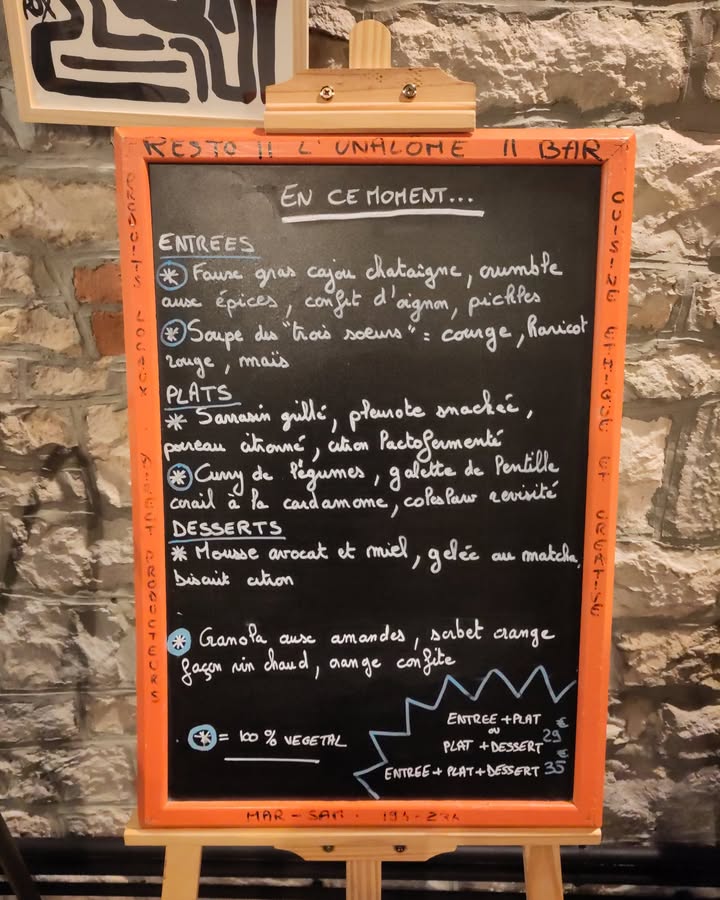 RESTO || L'UNALOME || BAR
PRODUITS LOCAUX DIRECT PRODUCTEURS
CUISINE ETHIQUE ET CREATIVE
EN CE MOMENT...
ENTREES
* Faux gras cajou chataigne, crumble
aux épices, confit d'oignon, pickles
* Soupe des "trois soeurs" : courge, haricot
rouge, maïs
PLATS
* Sarrasin grillé, pleurote snackée,
poireau citronné, citron lactofermenté
* Curry de légumes, galette de lentille
corail à la cardamome, coleslaw revisité
DESSERTS
* Mousse avocat et miel, gelée au matcha,
biscuit citron
* Granola aux amandes, sorbet orange
façon vin chaud, orange confite
* = 100 % VEGETAL
ENTREE + PLAT
OU
PLAT + DESSERT 29 €
ENTREE + PLAT + DESSERT 35 €
MAR - SAM · 19h - 23h